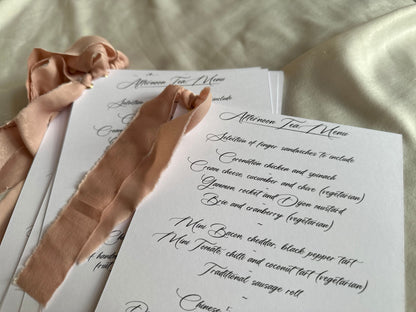 Afternoon Tea Menu
Selection of finger sandwiches to include
Coronation chicken and spinach
Cream cheese cucumber and chive (vegetarian)
Gammon rocket and Dijon mustard
Brie and cranberry (vegetarian)
-
Mini Bacon, cheddar, black pepper tart
Mini Tomato, chilli and coconut tart (vegetarian)
-
Traditional sausage roll
-
Afternoon Tea Menu
Selection
include